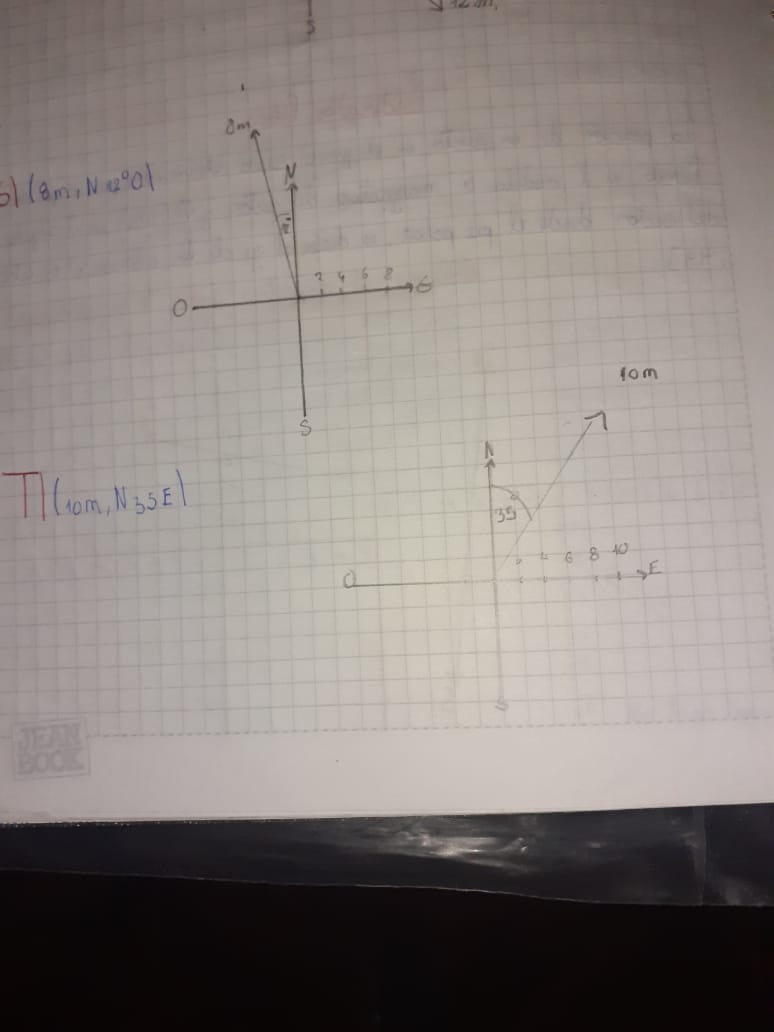 S
12m.
8m
5) (8m, N12°O)
N
12°
2 4 6 8
O
E
S
10m
N
T) (10m, N35E)
35
2 4 6 8 10
O
E
S
JEAN
BOOK